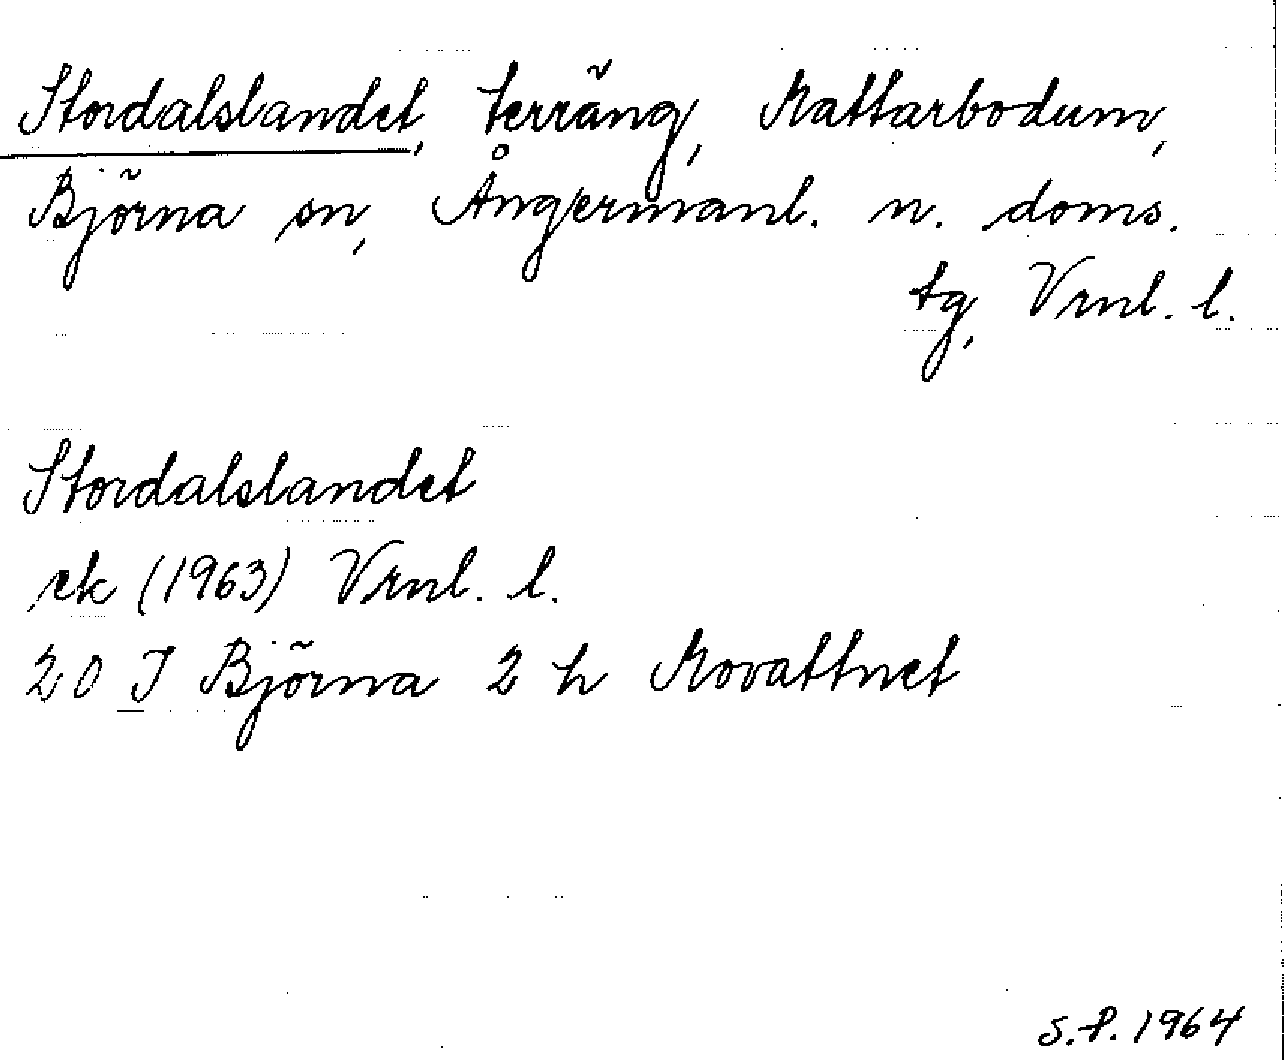 Stordalslandet, terräng, Mattarbodum,
Björna sn, Ångermanl. n. doms.
tg, Vrnl. l.
Stordalslandet
ek (1963) Vrnl. l.
20 I Björna 2 h Movattnet
S.P. 1964